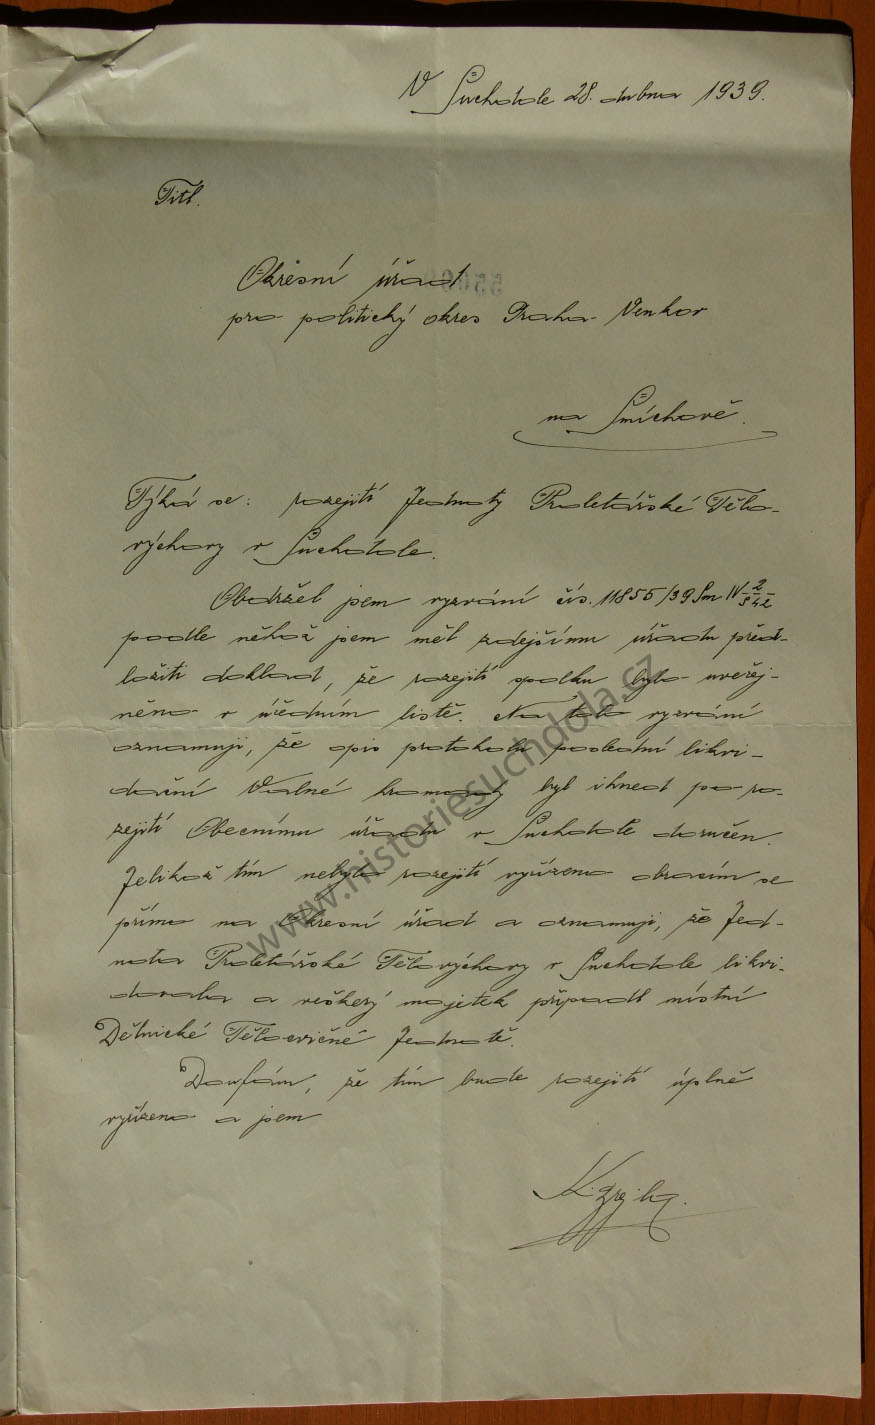 V Suchdole 28. dubna 1939.
Titl.
Okresní úřad
pro politický okres Praha-Venkov
na Smíchově.
Týká se: rozejití Jednoty Proletářské Tělo-
výchovy v Suchdole.
Obdržel jsem vyzvání čís. 11855/39 Sm IV-
podle něhož jsem měl zdejšímu úřadu před-
ložiti doklad, že rozejití spolku bylo uveřej-
něno v úředním listě. Na toto vyzvání
oznamuji, že opis protokolu poslední likvi-
dační Valné hromady byl ihned po ro-
zejití Obecnímu úřadu v Suchdole doručen.
Jelikož tím nebylo rozejití vyřízeno obracím se
přímo na Okresní úřad a oznamuji, že Jed-
nota Proletářské Tělovýchovy v Suchdole likvi-
dovala a veškerý majetek připadl místní
Dělnické Tělocvičné Jednotě.
Doufám, že tím bude rozejití úplně
vyřízeno a jsem
www.historiesuchdola.cz